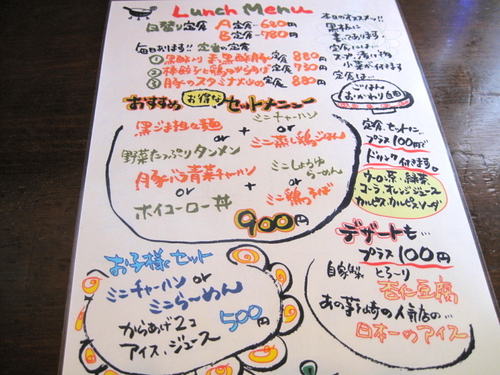 Lunch Menu
日替り定食 A定食-680円
B定食-780円
毎日おはる!! 定番の定食
① 黒酢豚定食 880円
② 棒餃子と鶏のからあげ定食 730円
③ 豚のスタミナ炒め定食 880円
本日のオススメ!!
黒板に
書いてあります
定食には…
スープ、漬け物
小菜が付きます
定食は…
ごはん
おかわり自由
おすすめ お得な セットメニュー
黒ごま担々麺
or
野菜たっぷりタンメン
or
豚バラ青菜チャーハン
or
ホイコーロー丼
+
+
ミニチャーハン
or
ミニ蒸し鶏ごはん
ミニしょうゆらーめん
or
ミニ鶏そば
900円
定食、セットに
プラス100円で
ドリンク付きます。
ウーロン茶・緑茶
コーラ・オレンジジュース
カルピス・カルピスソーダ
デザートも…
プラス100円
自家製 とろ〜り
杏仁豆腐
あの茅ヶ崎の人気店の…
日本一のアイス
お子様セット
ミニチャーハン or
ミニらーめん
からあげ2コ
アイス、ジュース
500円